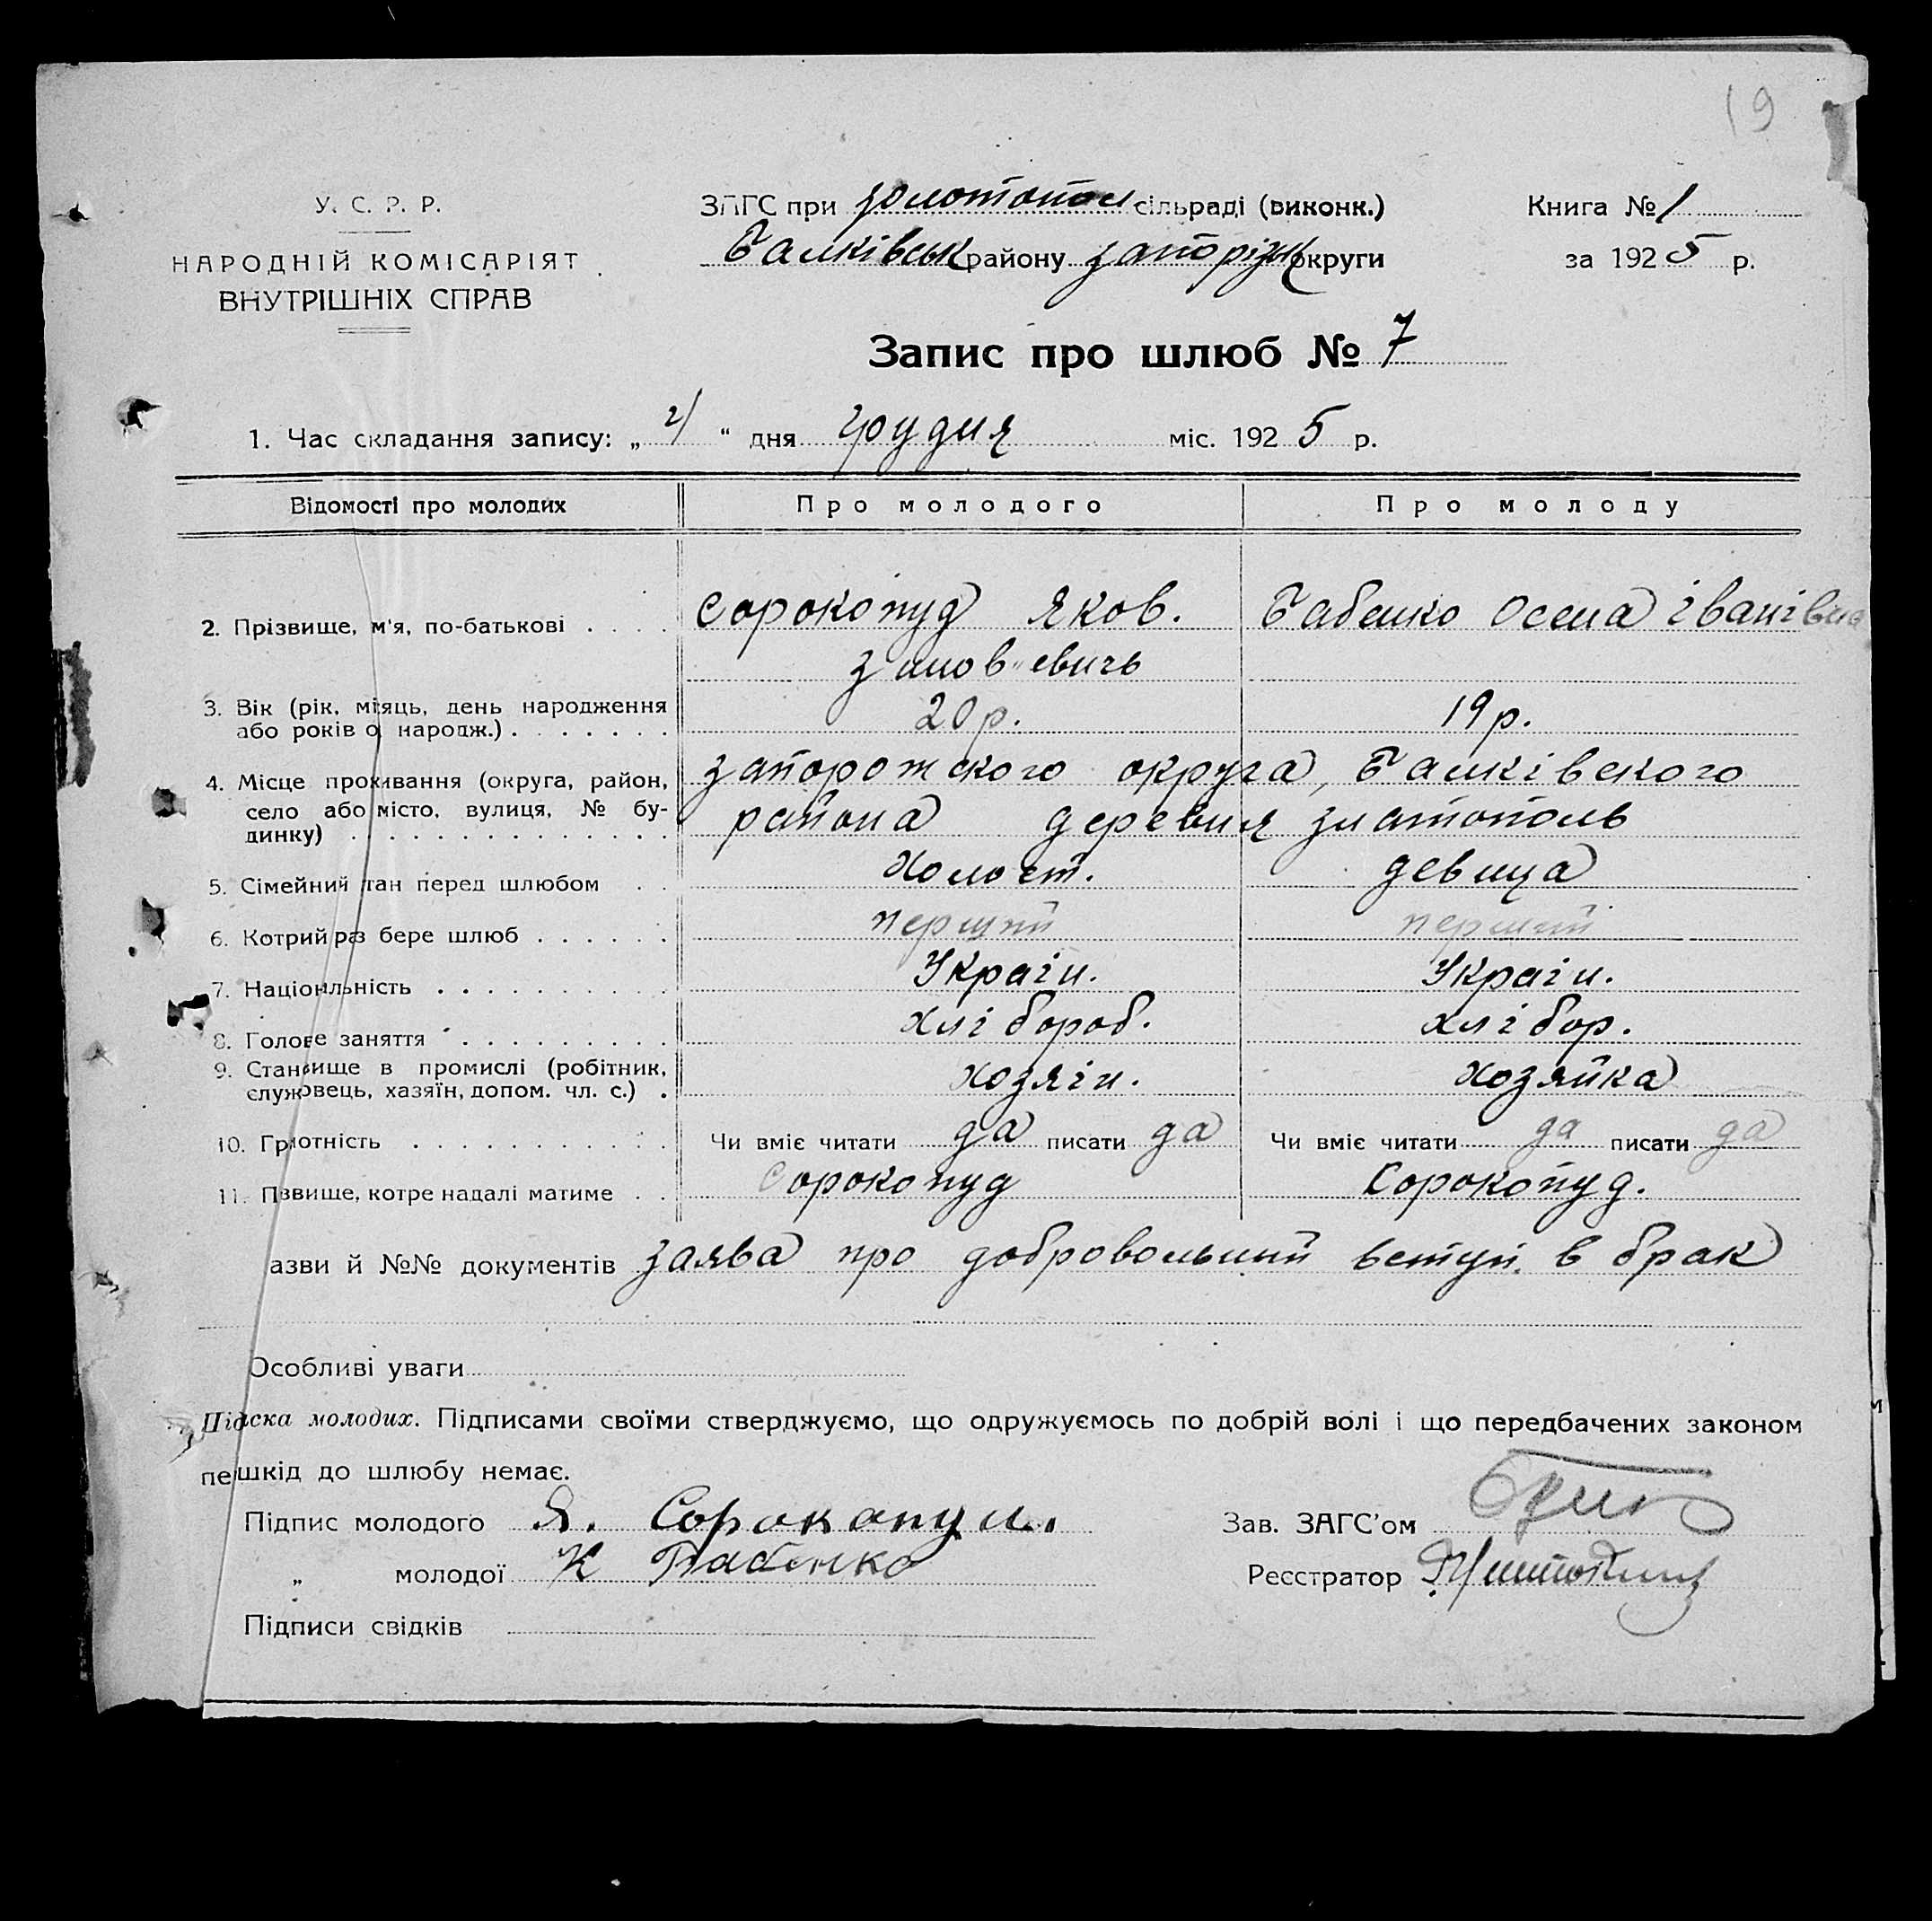 19
У. С. Р. Р.
НАРОДНІЙ КОМІСАРІЯТ
ВНУТРІШНІХ СПРАВ
ЗАГС при золотопол сільраді (виконк.)
Балківськ району запорізьк округи
Книга № 1
за 1925 р.
Запис про шлюб № 7
1. Час складання запису: „ “ дня грудня міс. 1925 р.
Відомості про молодих Про молодого Про молоду
2. Прізвище, м'я, по-батькові . . . . Сорокопуд Яков. Бабенко Осена іванівна
зинов"евичь
3. Вік (рік, місяць, день народження
або років о народж.) . . . . . . . 20р. 19р.
4. Місце проживання (округа, район, запорожского округа, Балківского
село або місто, вулиця, № бу- района деревня златополь
динку) . . . . . . . . . . . . .
5. Сімейний тан перед шлюбом . . Холост. девица
6. Котрий раз бере шлюб . . . . . . перший перший
7. Національність . . . . . . . . . . Україн. Україн.
8. Голове заняття . . . . . . . . . . хлібороб. хлібор.
9. Становище в промислі (робітник,
служовець, хазяїн, допом. чл. с.) . хозяін. хозяйка
10. Грмотність . . . . . . . . . . . Чи вміє читати да писати да Чи вміє читати да писати да
11. Пзвище, котре надалі матиме . . Сорокопуд Сорокопуд.
азви й №№ документів заява про добровольний вступ. в брак
Особливі уваги
Підска молодих. Підписами своїми стверджуємо, що одружуємось по добрій волі і що передбачених законом
пешкід до шлюбу немає.
Підпис молодого Я. Сорокопуд.
„ молодої К Бабенко
Підписи свідків
Зав. ЗАГС'ом
Реєстратор